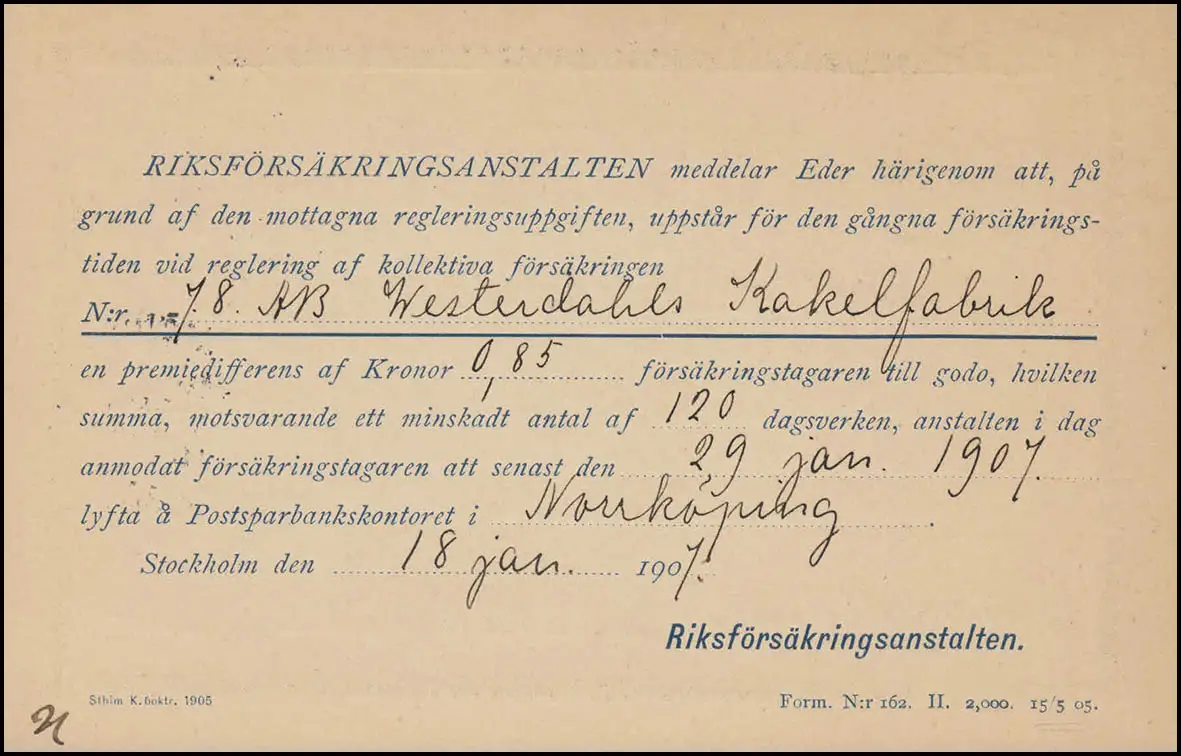 RIKSFÖRSÄKRINGSANSTALTEN meddelar Eder härigenom att, på
grund af den mottagna regleringsuppgiften, uppstår för den gångna försäkrings-
tiden vid reglering af kollektiva försäkringen
N:r 78. AB Westerdahls Kakelfabrik
en premiedifferens af Kronor 0,85 försäkringstagaren till godo, hvilken
summa, motsvarande ett minskadt antal af 120 dagsverken, anstalten i dag
anmodat försäkringstagaren att senast den 29 jan. 1907.
lyfta å Postsparbankskontoret i Norrköping.
Stockholm den 18 jan. 1907.
Riksförsäkringsanstalten.
Sthlm K. boktr. 1905
Form. N:r 162. II. 2,000. 15/5 05.